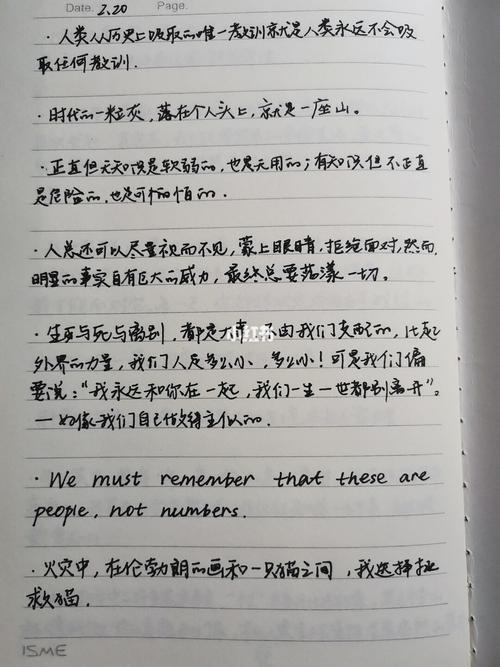 Date. 2.20 Page.
· 人类从历史上吸取的唯一教训就是人类永远不会吸
取任何教训.
· 时代的一粒灰，落在个人头上，就是一座山。
· 正直但无知识是软弱的，也是无用的；有知识但不正直
是危险的，也是可怕的.
· 人总还可以尽量视而不见，蒙上眼睛，拒绝面对，然而，
明显的事实自有巨大的威力，最终总要荡漾一切。
· 生死与死与离别，都是大事，不由我们支配的，比起
外界的力量，我们人是多么小，多么小！可是我们偏
要说："我永远和你在一起，我们一生一世都别离开"。
一好像我们自己做得主似的.
小红书
· We must remember that these are
people, not numbers.
· 火灾中，在伦勃朗的画和一只猫之间，我选择拯
救猫.
ISME